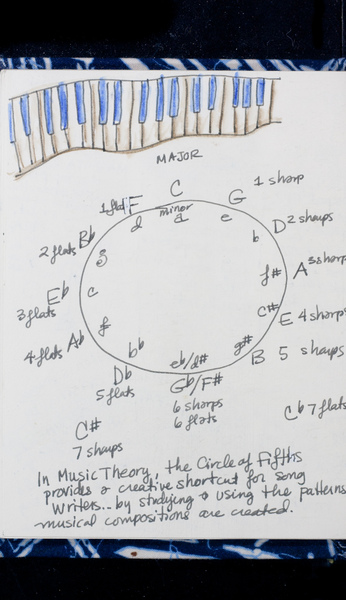 MAJOR
C
1 flat F
G 1 sharp
minor
d a e
Bb 2 flats
D 2 sharps
g b
Eb 3 flats
A 3 sharps
c f#
Ab 4 flats
E 4 sharps
f c#
bb g#
B 5 sharps
eb/d#
Db 5 flats
Gb/F#
6 sharps
6 flats
Cb 7 flats
C#
7 sharps
In Music Theory, the Circle of Fifths
provides a creative shortcut for song
writers... by studying & using the patterns
musical compositions are created.